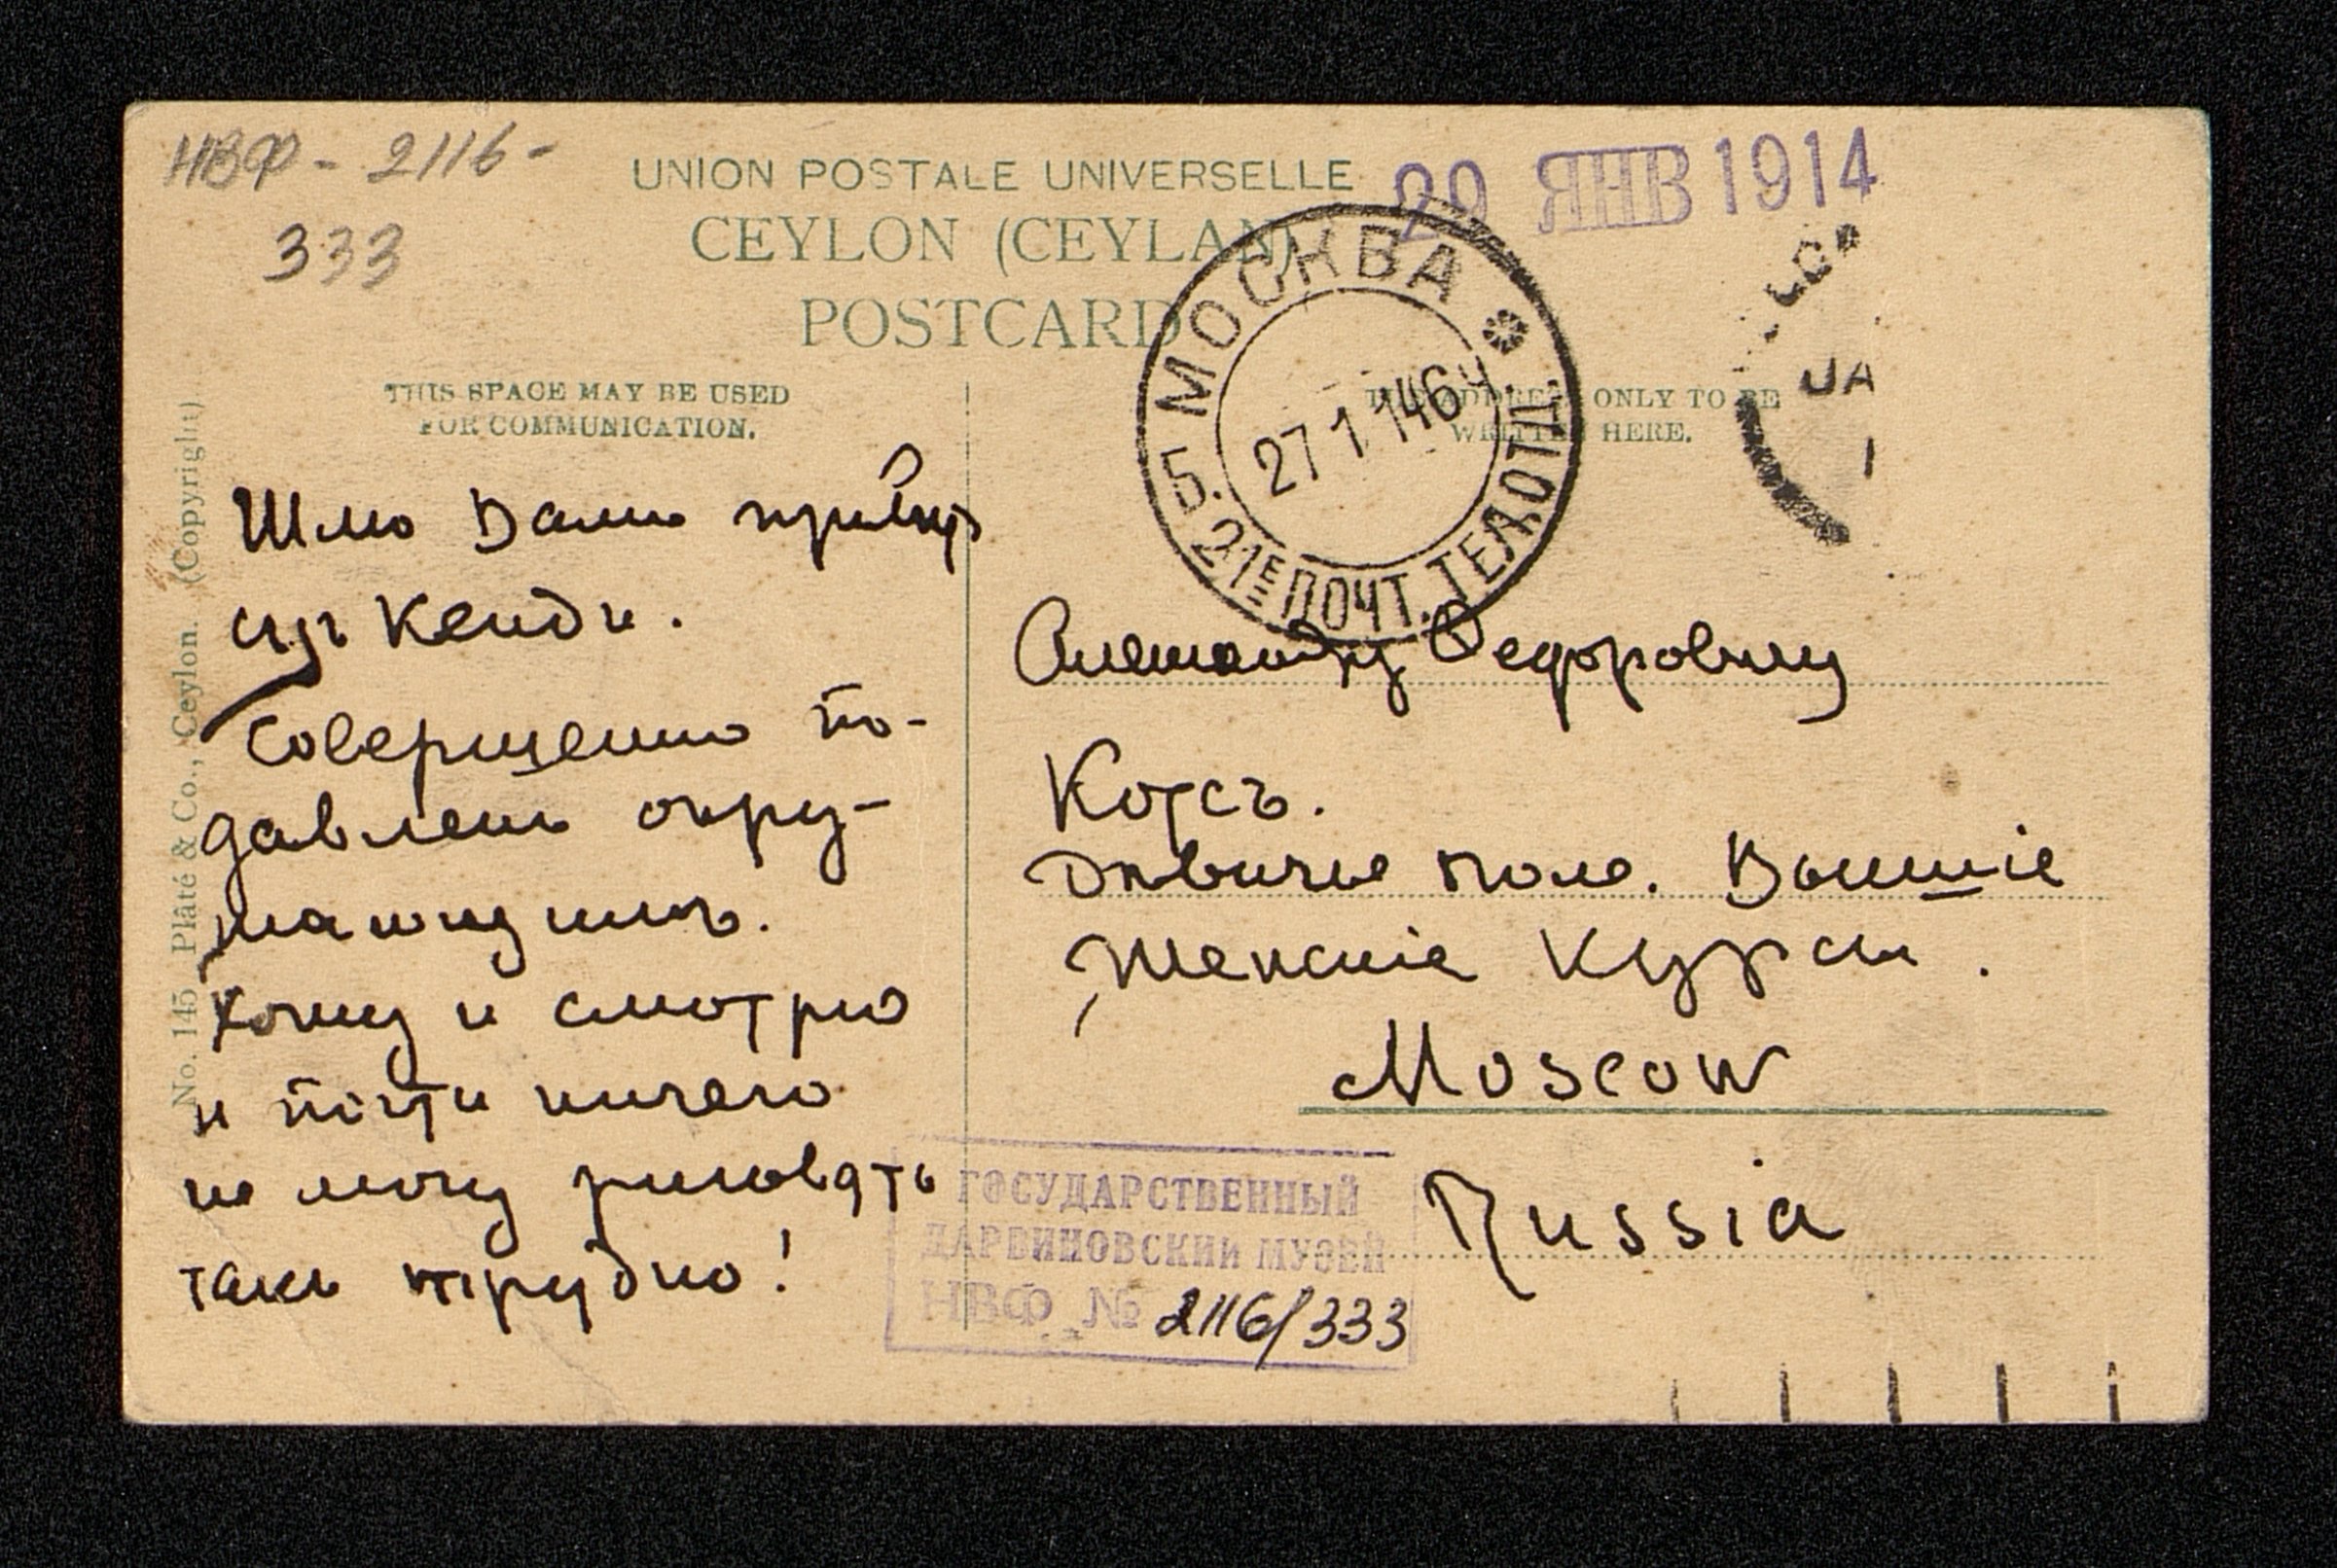 НВФ - 2116 -
333
UNION POSTALE UNIVERSELLE
29 ЯНВ 1914
CEYLON (CEYLAN)
POSTCARD
THIS SPACE MAY BE USED
FOR COMMUNICATION.
THE ADDRESS ONLY TO BE
WRITTEN HERE.
МОСКВА
27 1 14 6 Ч.
Б. 21Е ПОЧТ. ТЕЛ. ОТД.
JA
No. 145 Plâté & Co., Ceylon. (Copyright)
Шлю Вамъ привѣтъ
изъ Кенди.
Совершенно по-
давленъ окру-
жающимъ.
Хожу и смотрю
и почти ничего
не могу рисовать
такъ трудно!
Александру Федоровичу
Котсъ.
Дѣвичье поле. Высшіе
Женскіе Курсы.
Moscow
Russia
ГОСУДАРСТВЕННЫЙ
ДАРВИНОВСКИЙ МУЗЕЙ
НВФ № 2116/333